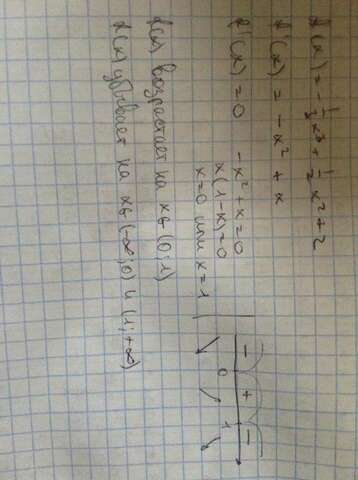 f(x) = -1/3x³ + 1/2x² + 2
f'(x) = -x² + x
f'(x) = 0 -x² + x = 0
x(1-x) = 0
x = 0 или x = 1
- + -
0 1
f(x) возрастает на xϵ(0;1)
f(x) убывает на xϵ(-∞;0) и (1;+∞)